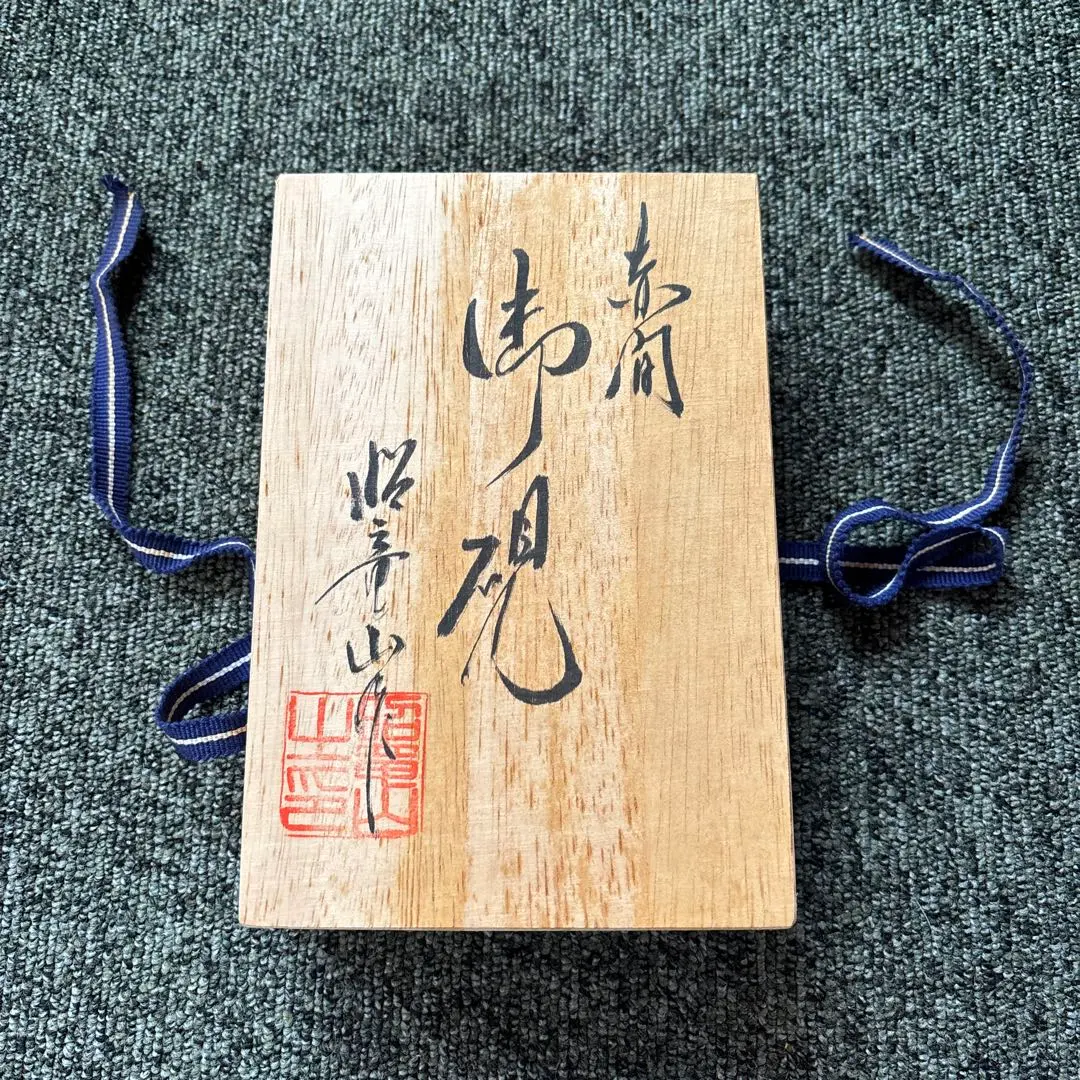 赤間
御硯
昭竜山作